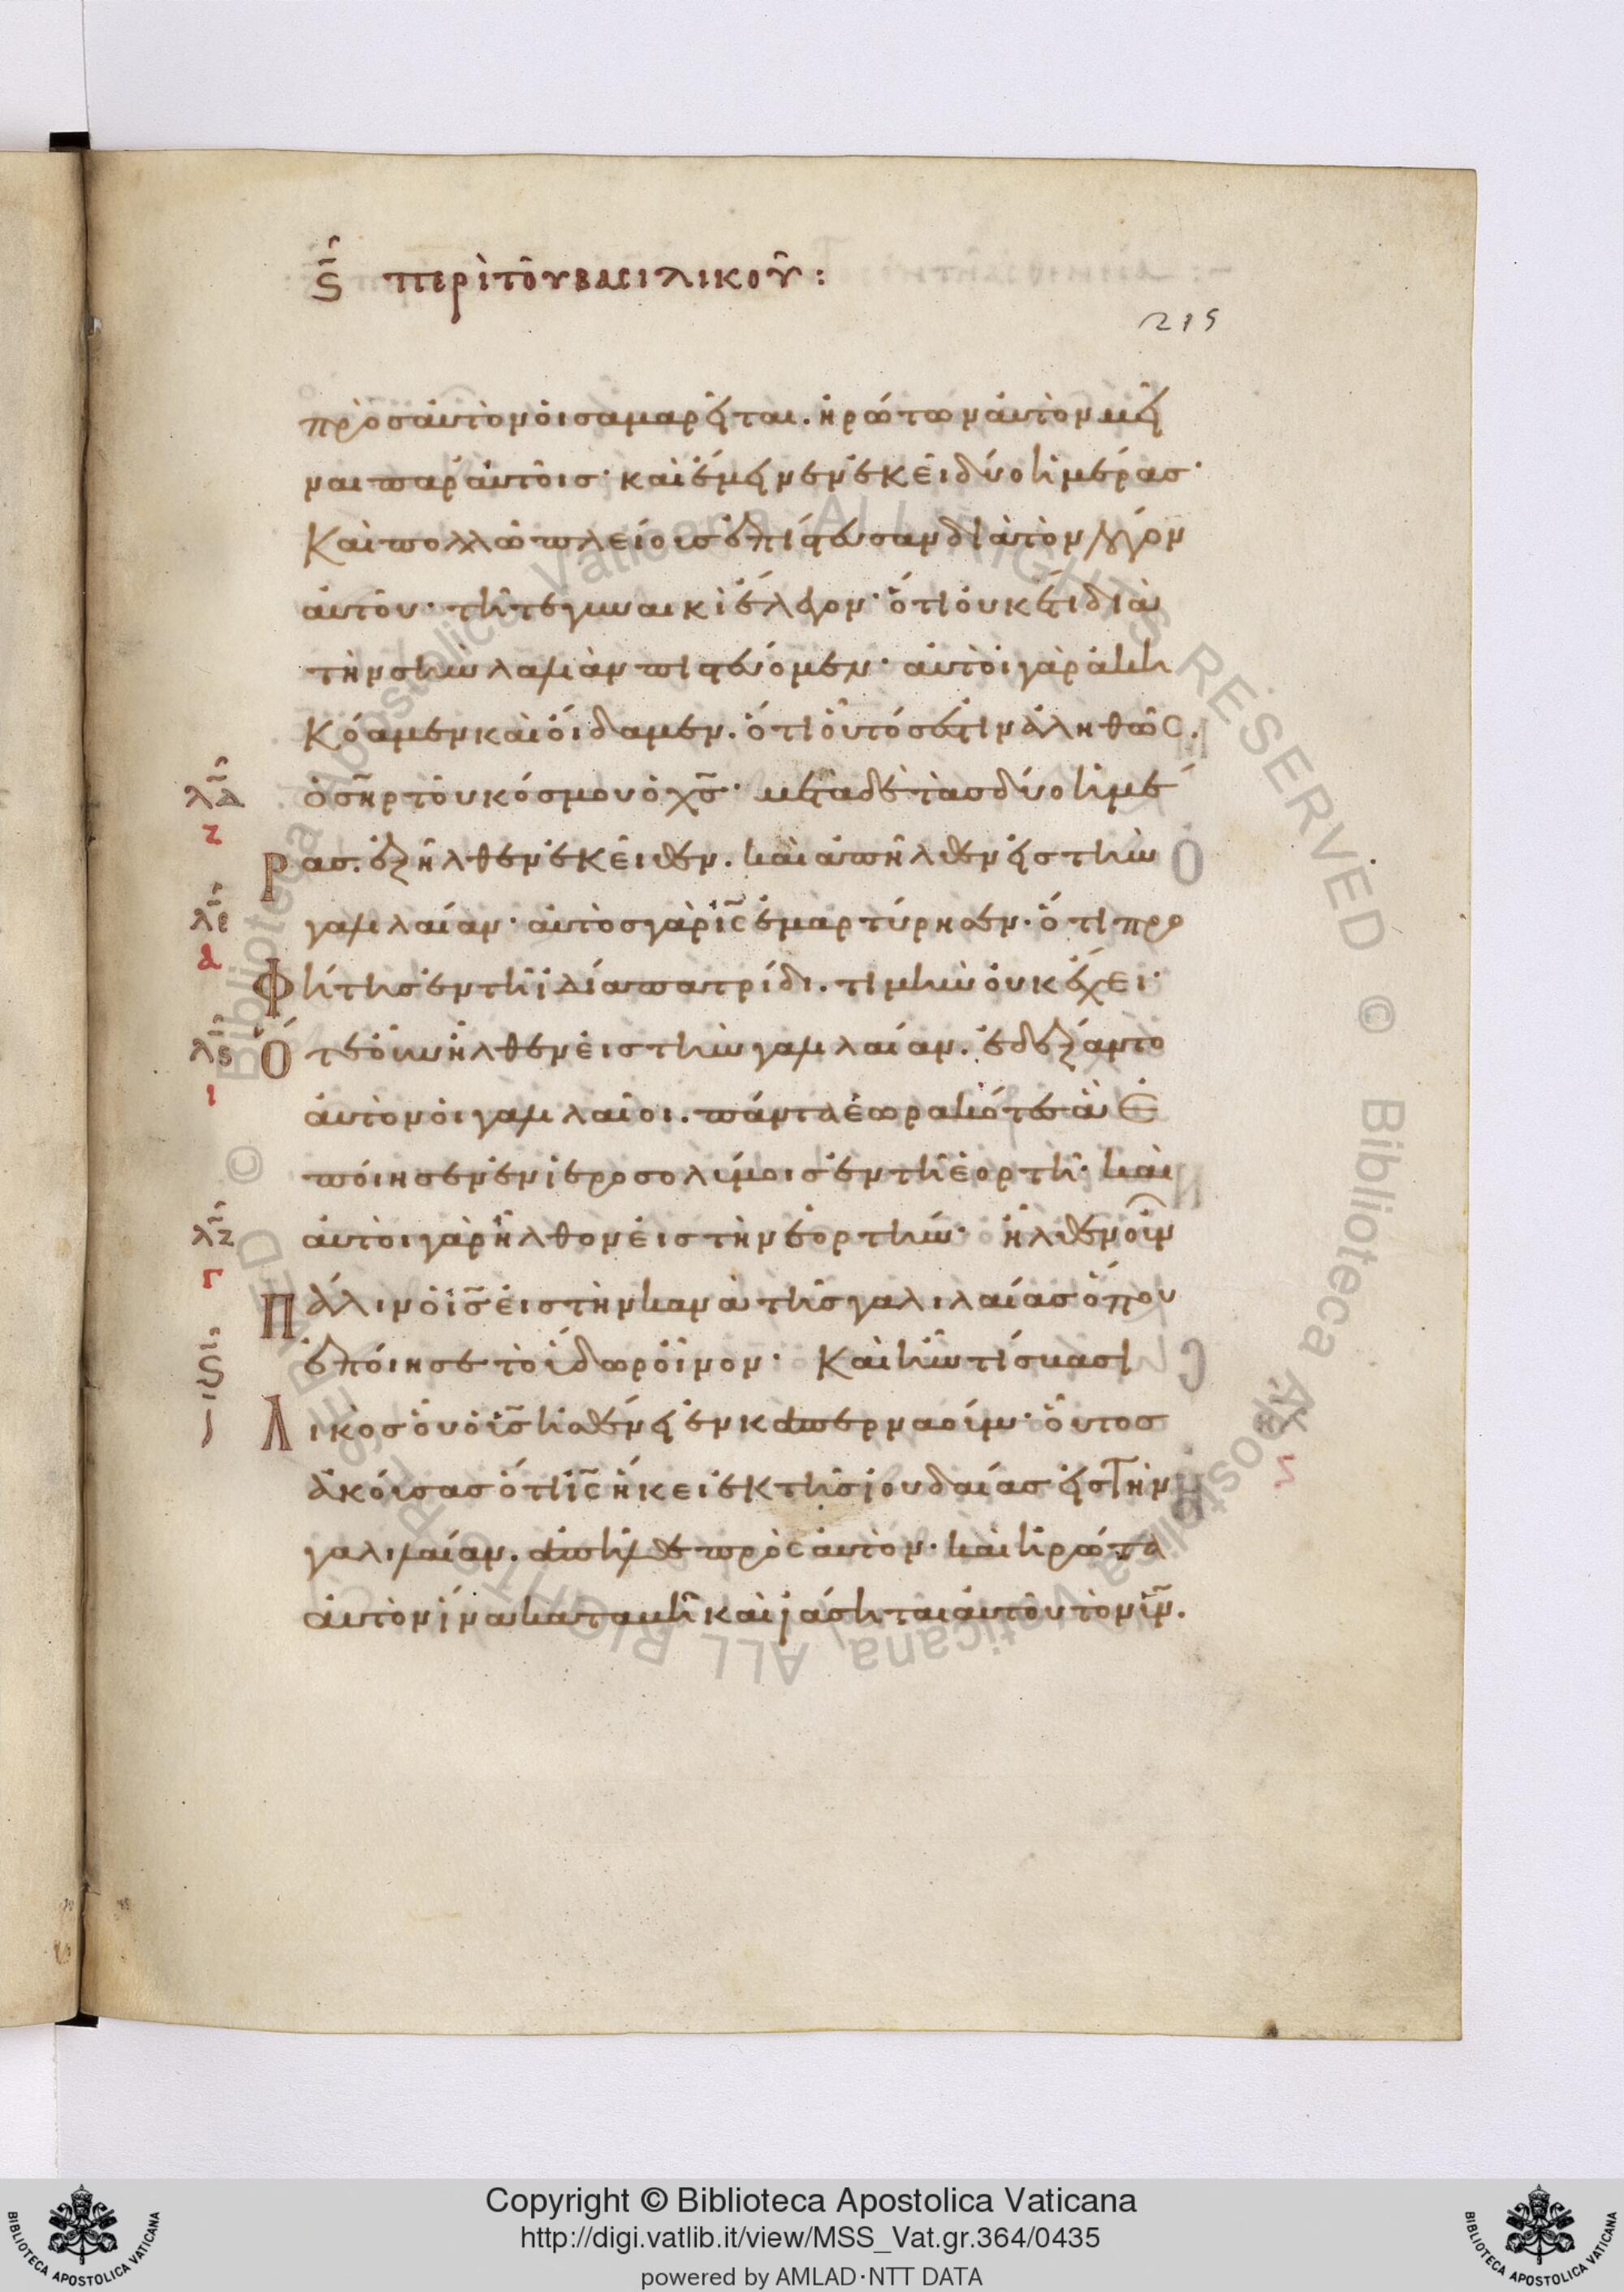 Ϛ περὶ τοῦ βασιλικοῦ :
219
πρὸσ ἀυτὸν ὁι σαμαρεῖται. ἠρώτων ἀυτὸν μεῖ
ναι παρ ἀυτοῖσ· καὶ ἔμεινεν ἐκεῖ δύο ἡμέρασ·
Καὶ πολλῶ πλείουσ ἐπίστευσαν διὰ τὸν λόγον
ἀυτοῦ· τῆ τε γυναικὶ ἔλεγον· ὅτι ὀυκέτι διὰ
τὴν σὴν λαλιὰν πιστεύομεν· ἀυτὸι γὰρ ἀκη
Κόαμεν καὶ ὄιδαμεν. ὅτι ὁῦτόσ ἐστιν ἀληθῶς.
ὁ σ̅η̅ρ τοῦ κόσμου ὁ χ̅σ̅· μετὰ δὲ τὰσ δύο ἡμέ
λδ
ζ
ρασ. ἐξῆλθεν ἐκεῖθεν. καὶ ἀπῆλθεν εἰσ τὴν
λε
α
γαλιλαίαν· ἀυτὸσ γὰρ ι̅ς̅ ἐμαρτύρησεν. ὅτι προ
Φήτησ ἐν τῆ ἰδία πατρίδι. τιμὴν ὀυκ ἔχει·
λϛ
ι
Ὅτε ὀῦν ἦλθεν ἐισ τὴν γαλιλαίαν. ἐδέξαντο
ἀυτὸν ὁι γαλιλαῖοι. πάντα ἑωρακότεσ ἃ ἐ
ποίησεν ἐν ἱεροσολύμοισ ἐν τῆ ἑορτῆ· καὶ
λζ
γ
ἀυτοὶ γὰρ ἦλθον ἐισ τὴν ἑορτήν· ἦλθεν ὀῦν
Πάλιν ὁ ι̅σ̅ ἐισ τὴν κανᾶ τῆσ γαλιλαίασ ὅπου
Ϛ
ἐποίησε τὸ ὕδωρ ὀῖνον· Καὶ ἦν τίσ βασι
Λικὸσ ὁῦ ὁ υ̅ἱ̅σ̅ ἠσθένει ἐν καπερναούμ· ὁῦτοσ
ἀκούσασ ὅτι ι̅ς̅ ἥκει ἐκ τῆσ ἰουδαίασ εἰσ τὴν
γαλιλαίαν. ἀπῆλθε πρὸς ἀυτὸν· καὶ ἠρώτα
ἀυτὸν ἵνα καταβῆ καὶ ἰάσηται ἀυτοῦ τὸν υ̅ν̅.
Biblioteca Apostolica Vaticana ALL RIGHTS RESERVED ©
Copyright © Biblioteca Apostolica Vaticana
http://digi.vatlib.it/view/MSS_Vat.gr.364/0435
powered by AMLAD·NTT DATA
BIBLIOTECA APOSTOLICA VATICANA
BIBLIOTECA APOSTOLICA VATICANA